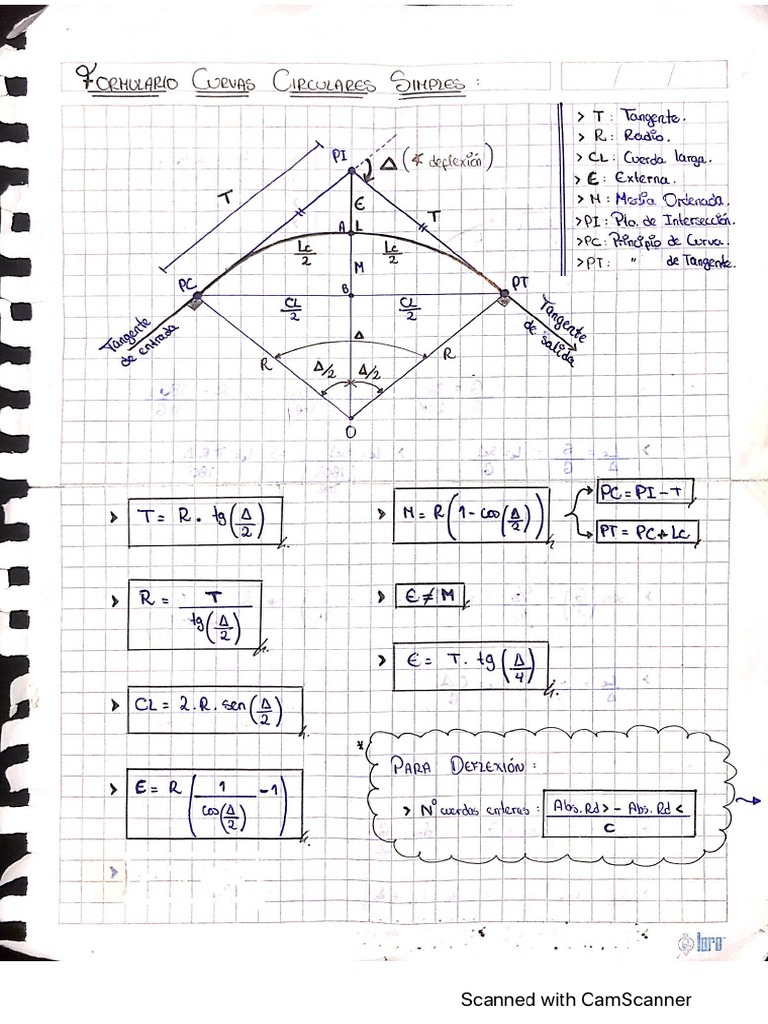 FORMULARIO CURVAS CIRCULARES SIMPLES:
> T: Tangente.
> R: Radio.
> CL: Cuerda larga.
> E: Externa.
> M: Media Ordenada.
> PI: Pto. de Intersección.
> PC: Principio de Curva.
> PT: " de Tangente.
PI
Δ (∢ deflexión)
T
E
T
A
L
Lc/2
Lc/2
M
PC
PT
B
CL/2
CL/2
Tangente de entrada
Tangente de salida
Δ
R
Δ/2
Δ/2
R
O
> T = R . tg(Δ/2)
> M = R(1 - cos(Δ/2))
PC = PI - T
PT = PC + Lc
> R = T/tg(Δ/2)
> E ≠ M
> E = T . tg(Δ/4)
> CL = 2.R.sen(Δ/2)
* PARA DEFLEXIÓN:
> E = R(1/cos(Δ/2) - 1)
> N° cuerdas enteras: (Abs. Rd > - Abs. Rd <)/C
>
loro
Scanned with CamScanner